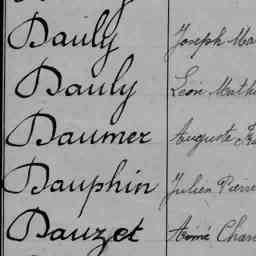 Dauly Joseph
Dauly Léon
Daumer Auguste
Dauphin Julien Pierre
Dauzet Aimé